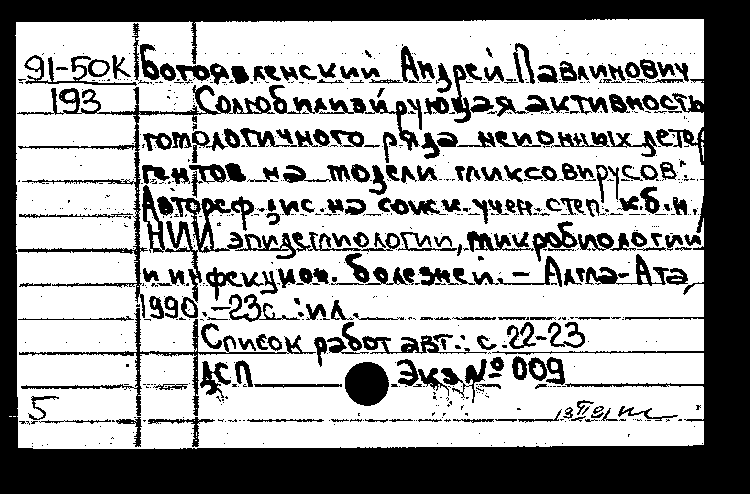 91-50К Богоявленский Андрей Павлинович
193 Солюбилизирующая активность
гомологичного ряда неионных детер
гентов на модели миксовирусов:
Автореф. дис. на соиск. учен. степ. к.б.н.
НИИ эпидемиологии, микробиологии
и инфекцион. болезней. – Алма-Ата,
1990. –23с. :ил.
Список работ авт.: с.22-23
ДСП Экз № 009
5